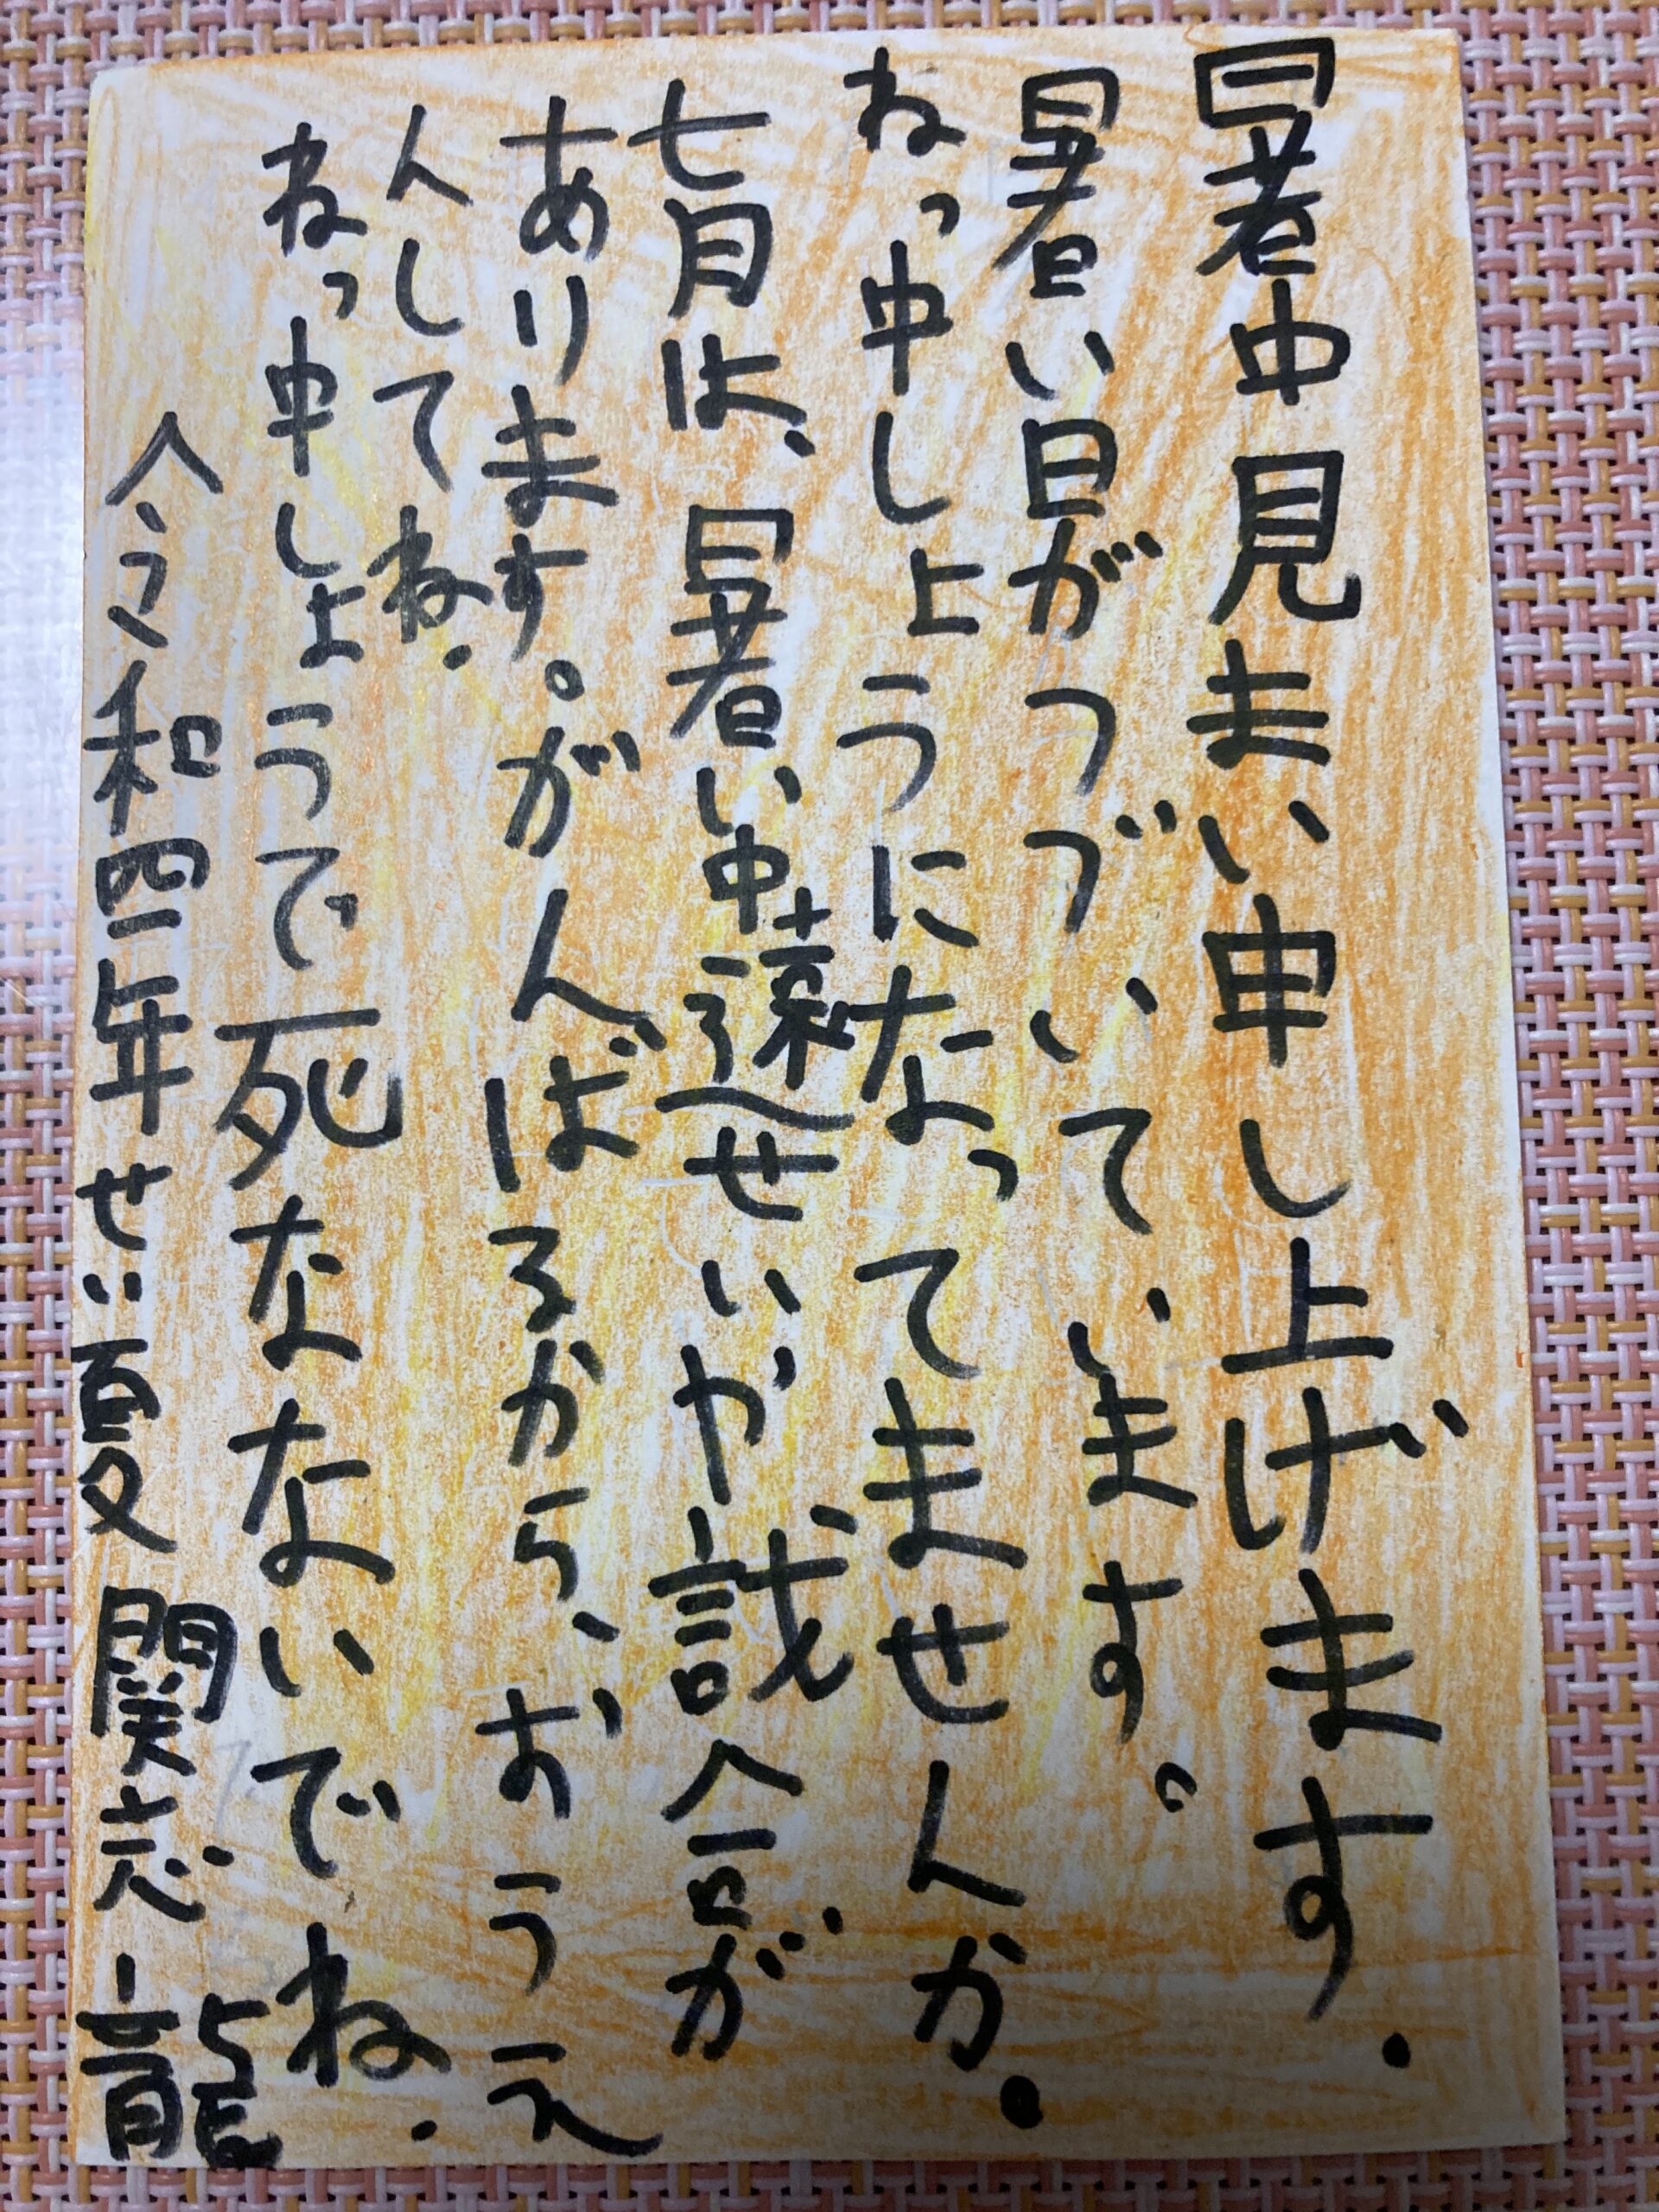 暑中見まい申し上げます.
暑い日がつづいています。
ねっ中しょうになってませんか.
七月は、暑い中遠せいや試合が
あります。がんばるから、おうえ
んしてね.
ねっ中しょうで死なないでね.
令和四年せい夏 関志龍